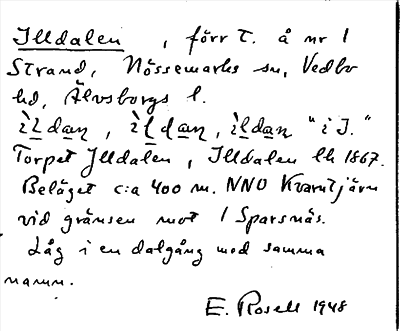 Illdalen, förr T. å nr 1
Strand, Nössemarks sn, Vedbo
hd, Älvsborgs l.
ìldan, ìldan, ìldan "i I."
Torpet Jlldalen, Illdalen lh 1867.
Beläget c:a 400 m. NNO Kvarntjärn
vid gränsen mot 1 Sparsnäs.
Låg i en dalgång med samma
namn.
E. Rosell 1948